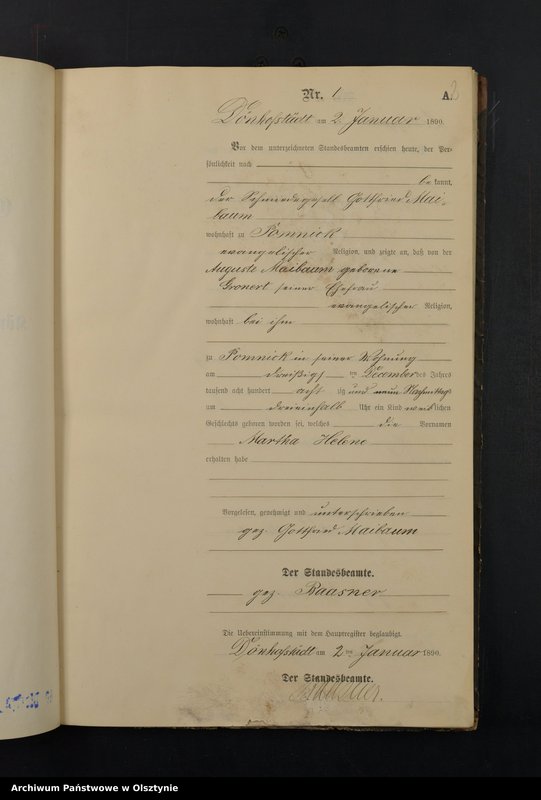 Nr. 1
A. 2
Dönhofstädt am 2. Januar 1890.
Vor dem unterzeichneten Standesbeamten erschien heute, der Per-
sönlichkeit nach
bekannt,
der Schmiedegesell Gottfried Mai-
baum
wohnhaft zu Pomnick
evangelischer Religion, und zeigte an, daß von der
Auguste Maibaum geborene
Gronert seiner Ehefrau
evangelischer Religion,
wohnhaft bei ihm
zu Pomnick in seiner Wohnung
am dreißigsten December des Jahres
tausend acht hundert achtzig und neun Nachmittags
um dreieinhalb Uhr ein Kind weiblichen
Geschlechts geboren worden sei, welches die Vornamen
Martha Helene
erhalten habe
Vorgelesen, genehmigt und unterschrieben
gez. Gottfried Maibaum
Der Standesbeamte.
gez. Raasner
Die Uebereinstimmung mit dem Hauptregister beglaubigt.
Dönhofstädt am 2ten Januar 1890.
Der Standesbeamte.
Raasner.
Archiwum Państwowe w Olsztynie